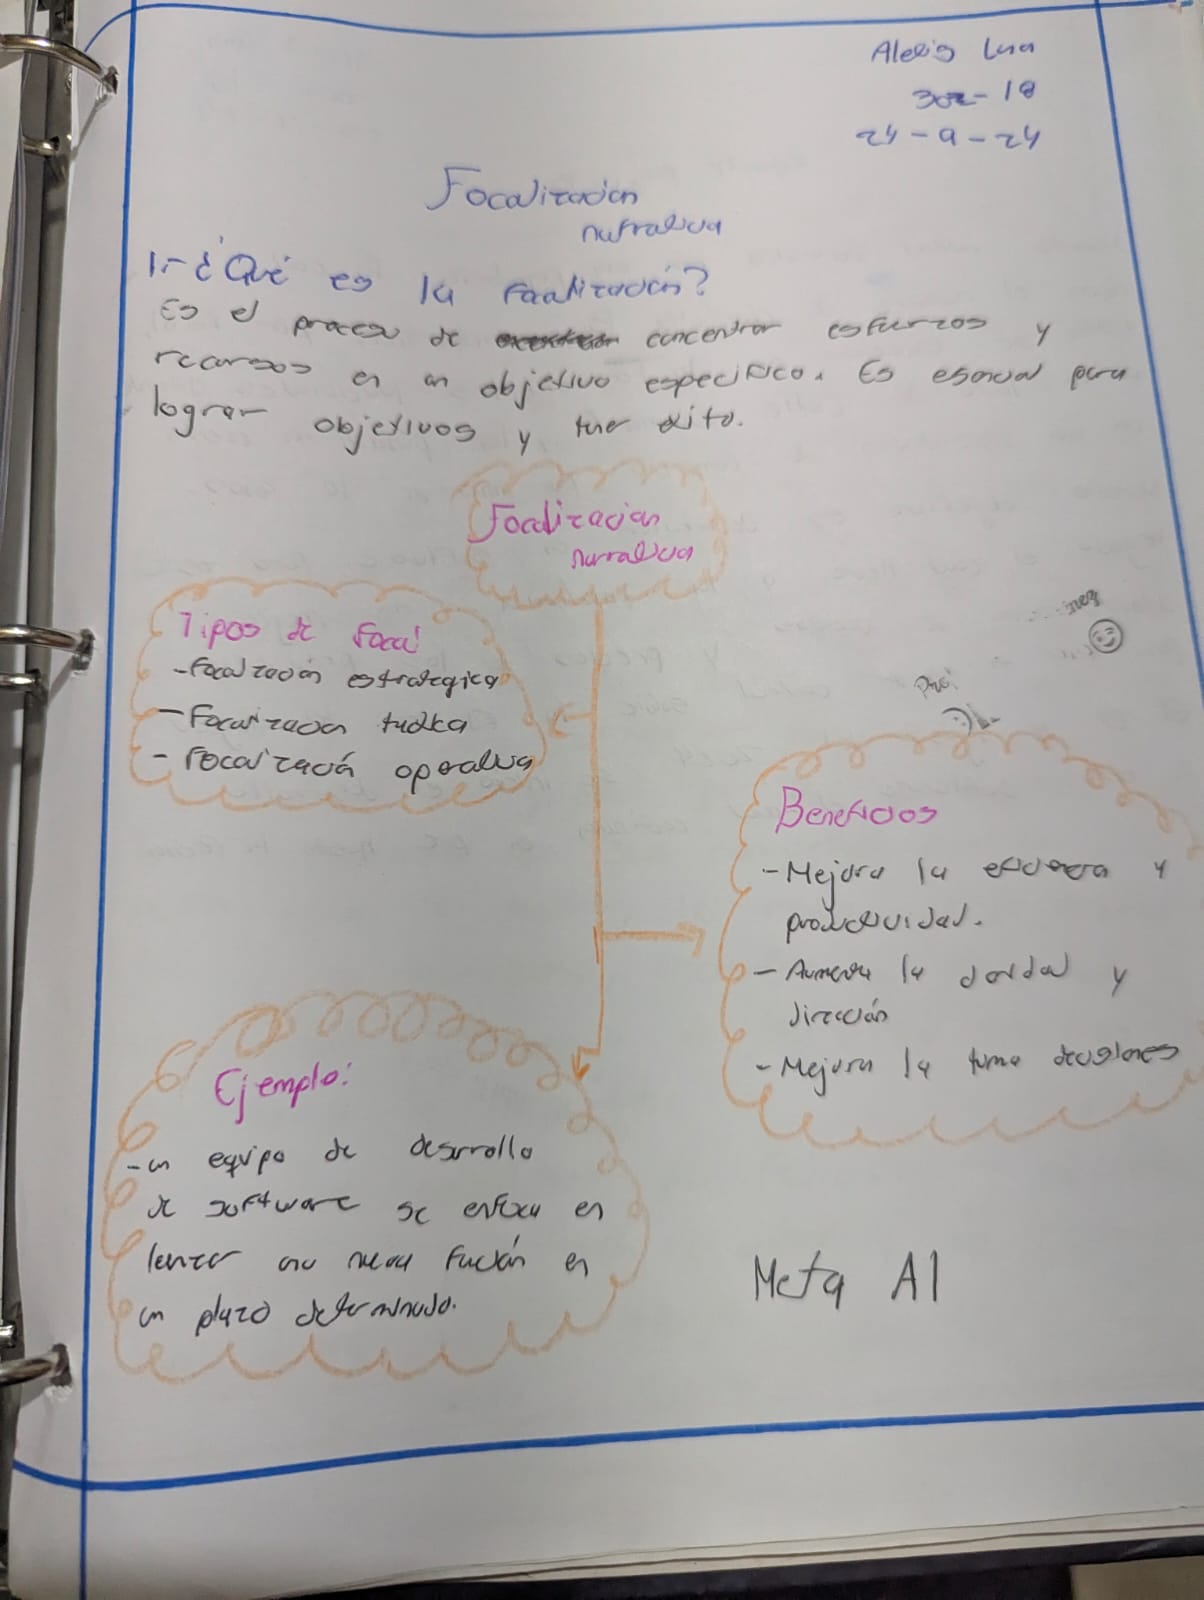 Alexis Luna
302-18
24-9-24
Focalización
narrativa
1.- ¿Qué es la Focalización?
Es el proceso de concentrar esfuerzos y
recursos en un objetivo especifico. Es esencial para
lograr objetivos y tener exito.
Focalización
narrativa
Tipos de Focal
- Focalización estrategica
- Focalización tactica
- Focalización operativa
Beneficios
- Mejora la eficiencia y
productividad.
- Aumenta la claridad y
dirección
- Mejora la toma decisiones
Ejemplo:
- un equipo de desarrollo
de software se enfoca en
lanzar una nueva función en
un plazo determinado.
Meta AI